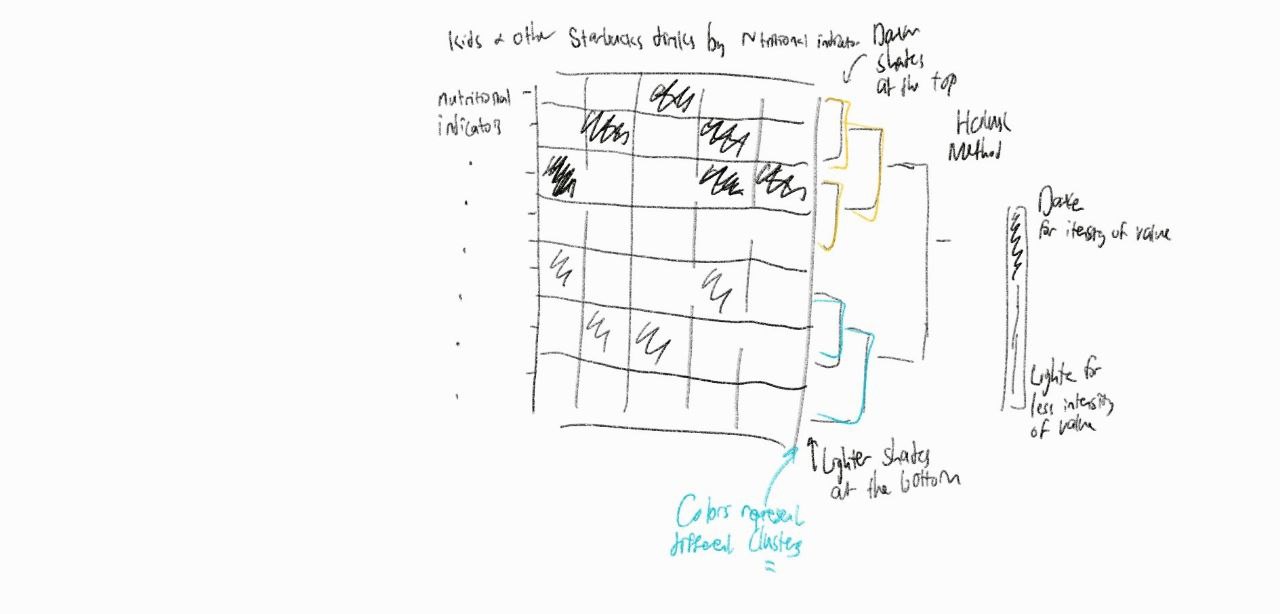 Kids & other Starbucks drinks by Nutritional indicator
Darker
shades
at the top
nutritional
indicators
Method
Darker
for itensity of value
Lighter for
less intensity
of value
Lighter shades
at the bottom
Colors represent
different clusters